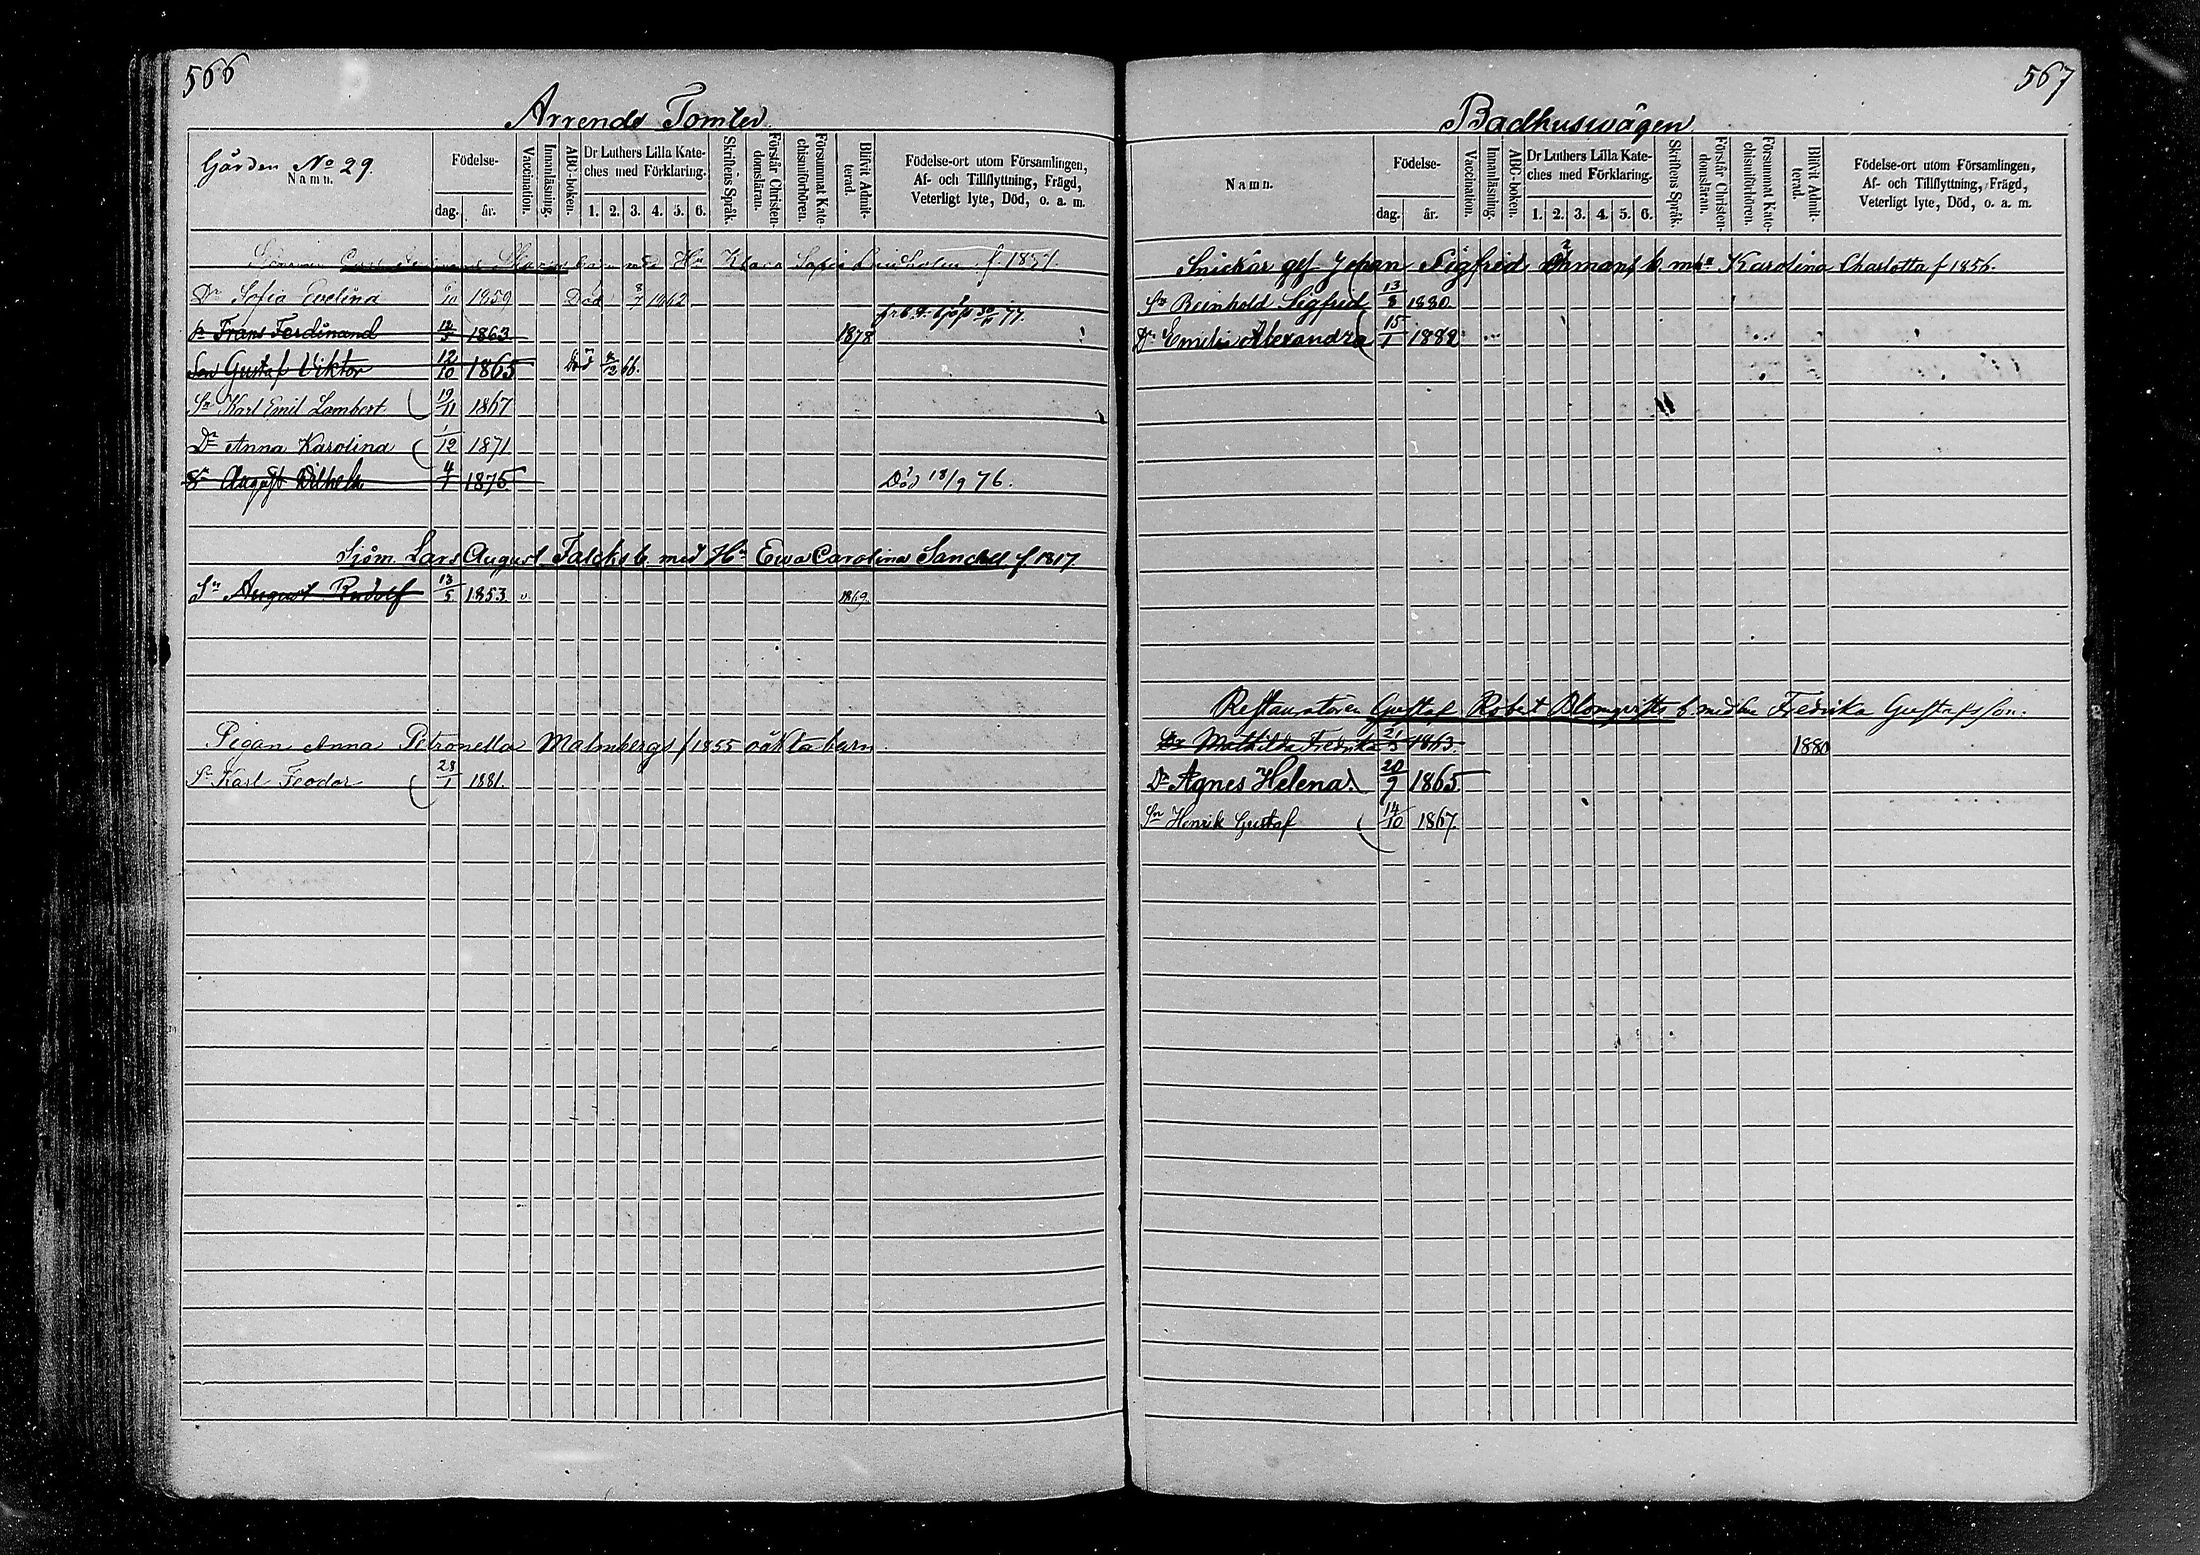 566
Arrende Tomter
Gården No 29.
Namn.
Födelse-
dag.
år.
Vaccination.
Innanläsning.
ABC-boken.
Dr Luthers Lilla Kate-
ches med Förklaring.
1. 2. 3. 4. 5. 6.
Skriftens Språk.
Förstår Christen-
domsläran.
Försummat Kate-
chismiförhören.
Blifvit Admit-
terad.
Födelse-ort utom Församlingen,
Af- och Tillflyttning, Frägd,
Veterligt lyte, Död, o. a. m.
barn med Hn Klara Sofia Lindholm f
Dr Sofia Evelina 1859 Död 8/7 1862
Sn Frans Ferdinand 1863 1878 30/11 77
Son Gustaf Viktor 12/10 1865 Död 66.
Sn Karl Emil Lambert 19/11 1867
Dr Anna Karolina 1/12 1871
Sn August Vilhelm 4/7 1875 Död 18/9 76.
Sjöm. Lars August Falcks b. med Hn Ewa Carolina f 1817
Sn August Rudolf 13/5 1853 1869.
Pigan Anna Petronella Malmbergs f 1855 oäkta barn
Sn Karl Feodor 28/1 1881.
567
Badhuswägen
Namn.
Födelse-
dag.
år.
Vaccination.
Innanläsning.
ABC-boken.
Dr Luthers Lilla Kate-
ches med Förklaring.
1. 2. 3. 4. 5. 6.
Skriftens Språk.
Förstår Christen-
domsläran.
Försummat Kate-
chismiförhören.
Blifvit Admit-
terad.
Födelse-ort utom Församlingen,
Af- och Tillflyttning, Frägd,
Veterligt lyte, Död, o. a. m.
Snickar ges Johan Sigfrid Öhmans b. m Karolina Charlotta f 1856.
Sn Reinhold Sigfrid 13/8 1880
Dr Emilia Alexandra 15/1 1882
Restauratören Gustaf Robert Blomqvists b. med hu Fredrika Gustafsson.
Dr Mathilda Fredrika 21/3 1863 1880
Dr Agnes Helena. 20/9 1865
Sn Henrik Gustaf 14/10 1867.